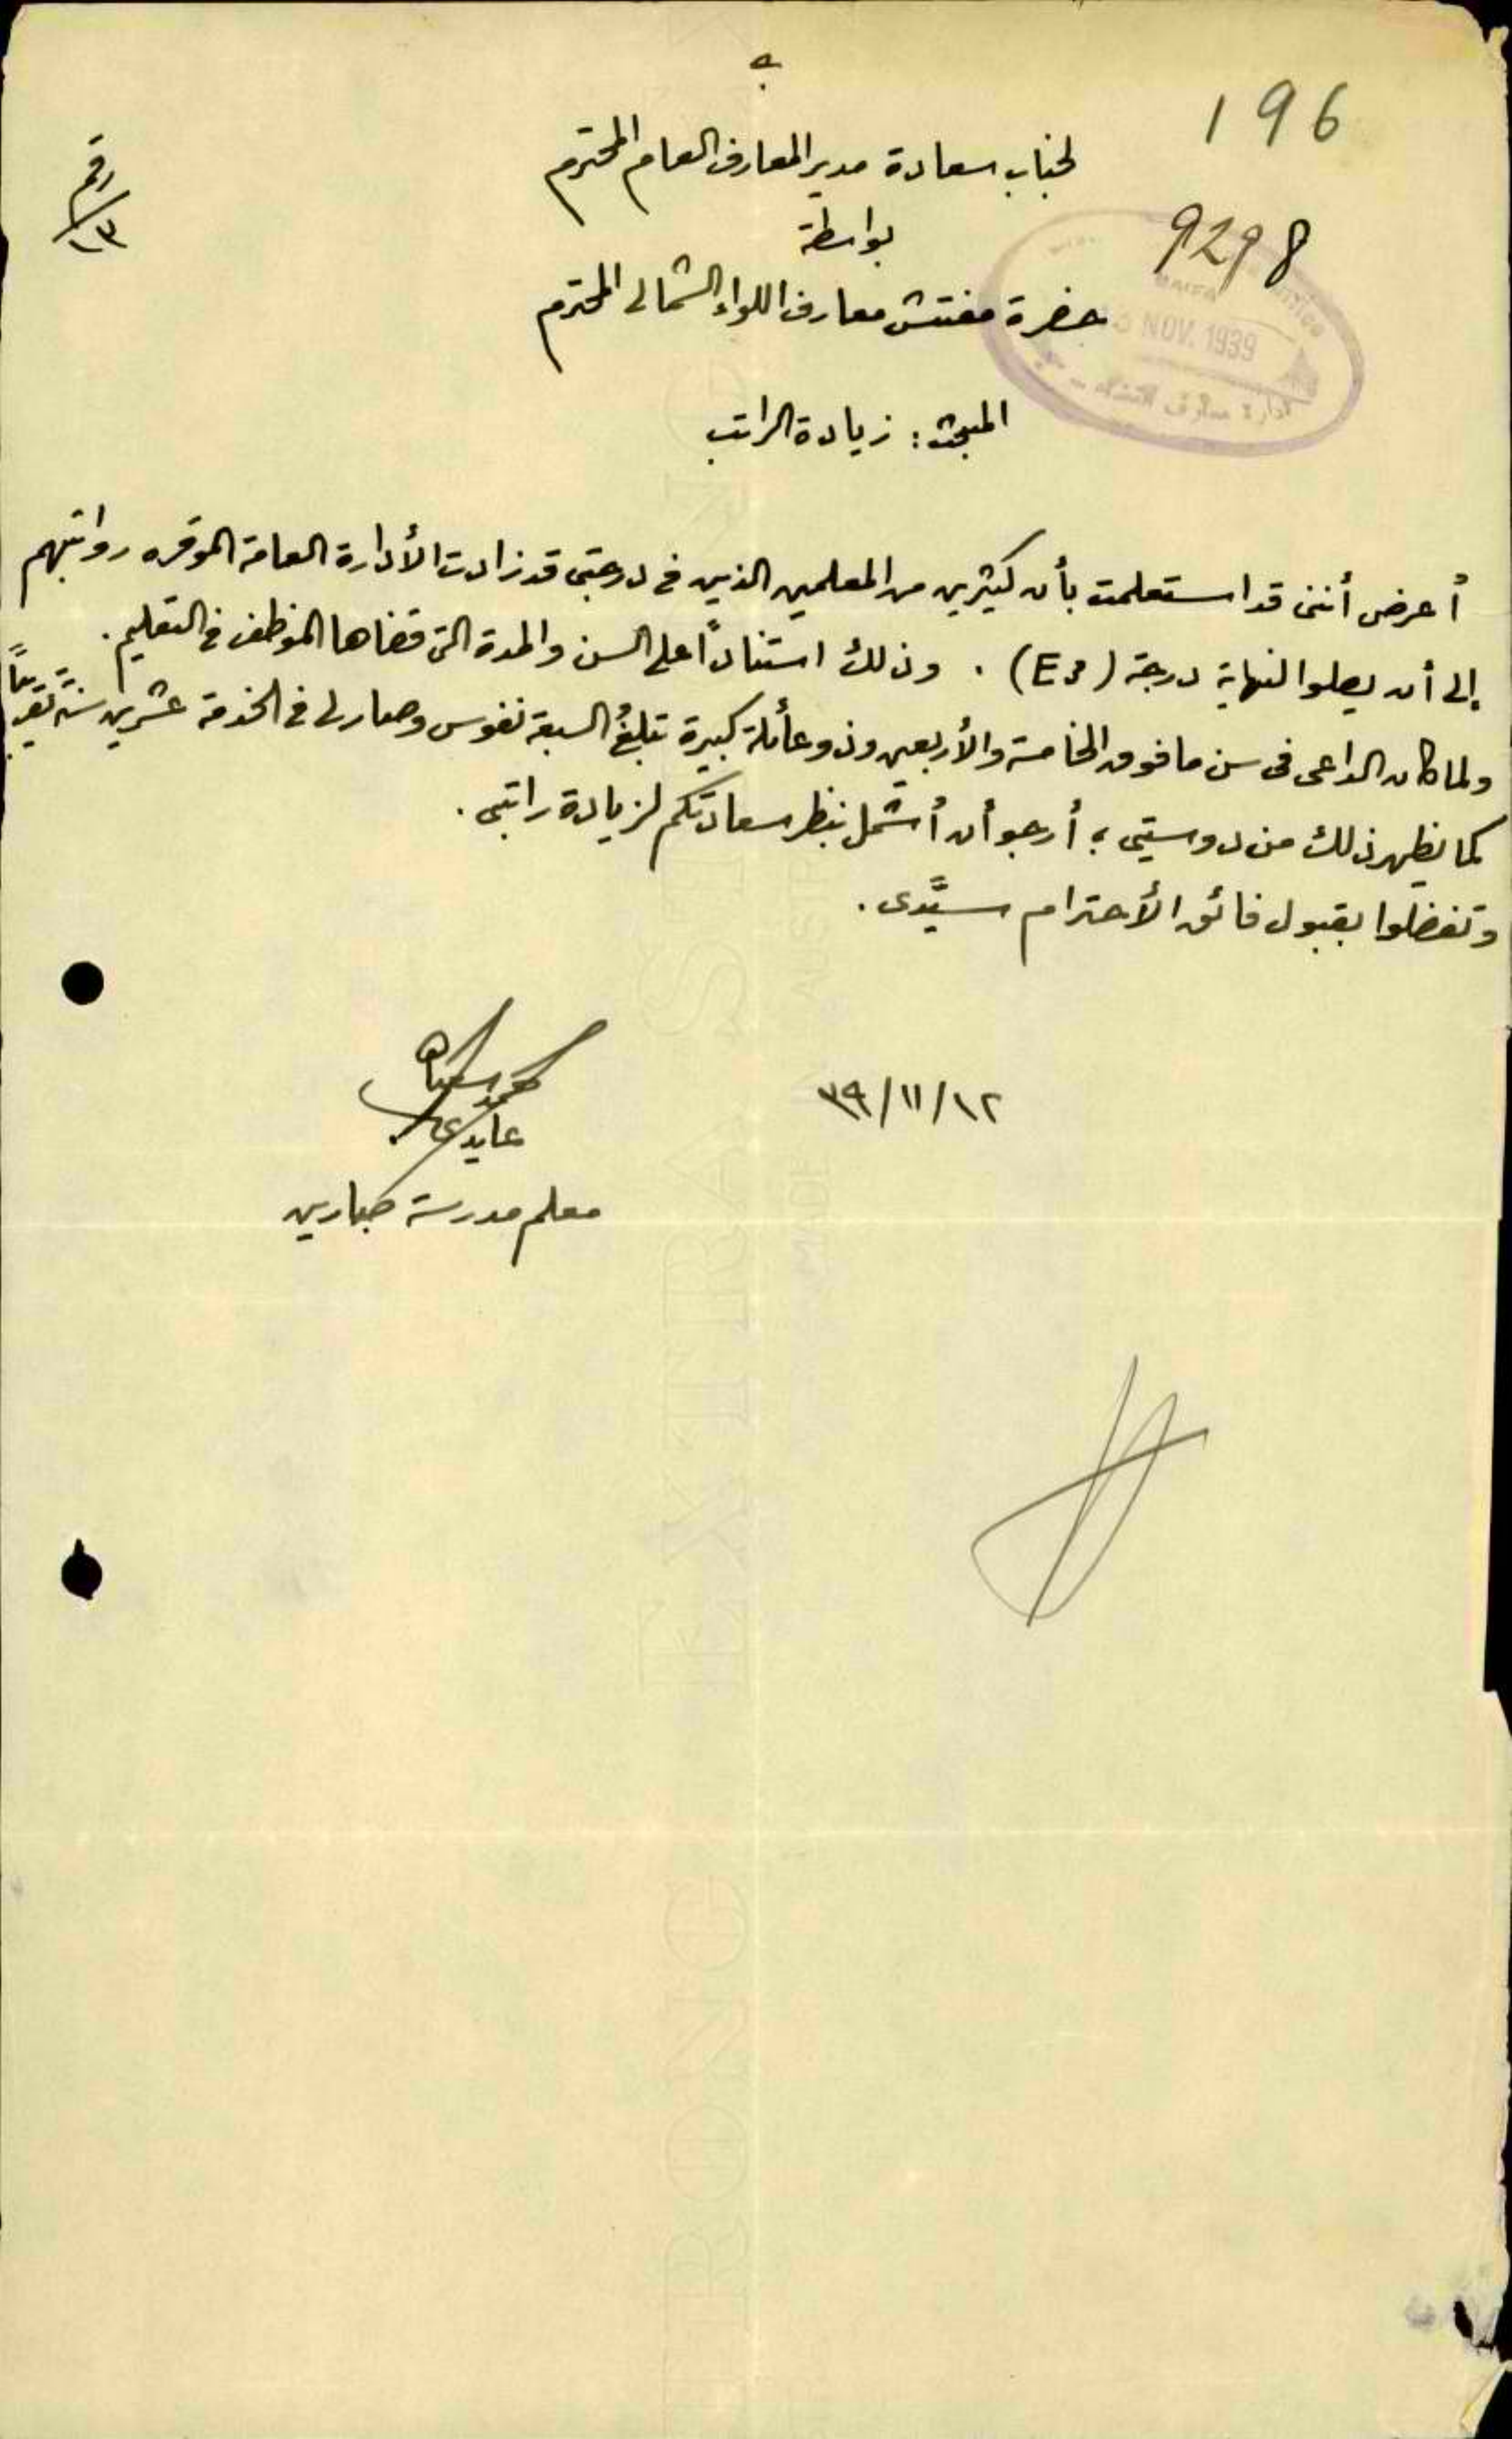 ه
196
لجناب سعادة مدير المعارف العام المحترم
رقم
١٣
بواسطة
9298
حضرة مفتش معارف اللواء الشمالي المحترم
NOV. 1939
ادارة معارف
المبحث : زيادة الراتب
أعرض أنني قد استعلمت بأن كثيرين من المعلمين الذين في درجتي قد زادت الأدارة العامة الموقره رواتبهم
إلى أن يصلوا لنهاية درجة (E3) . وذلك استناداً على السن والمدة التى قضاها الموظف في التعليم .
ولما كان الداعى فى سن ما فوق الخامسة والأربعين وذو عأئلة كبيرة تبلغُ السبعة نفوس وصار لى في الخدمة عشرين سنة تقريباً
كما يظهر ذلك من دوستيى ؛ أرجو أن أُشمل بنظر سعادتكم لزيادة راتبى .
وتفضلوا بقبول فائق الأحترام سيِّدى .
٣٩/١١/١٢
محمد
عايدي
معلم مدرسة صبارين
EXTRA STRONG